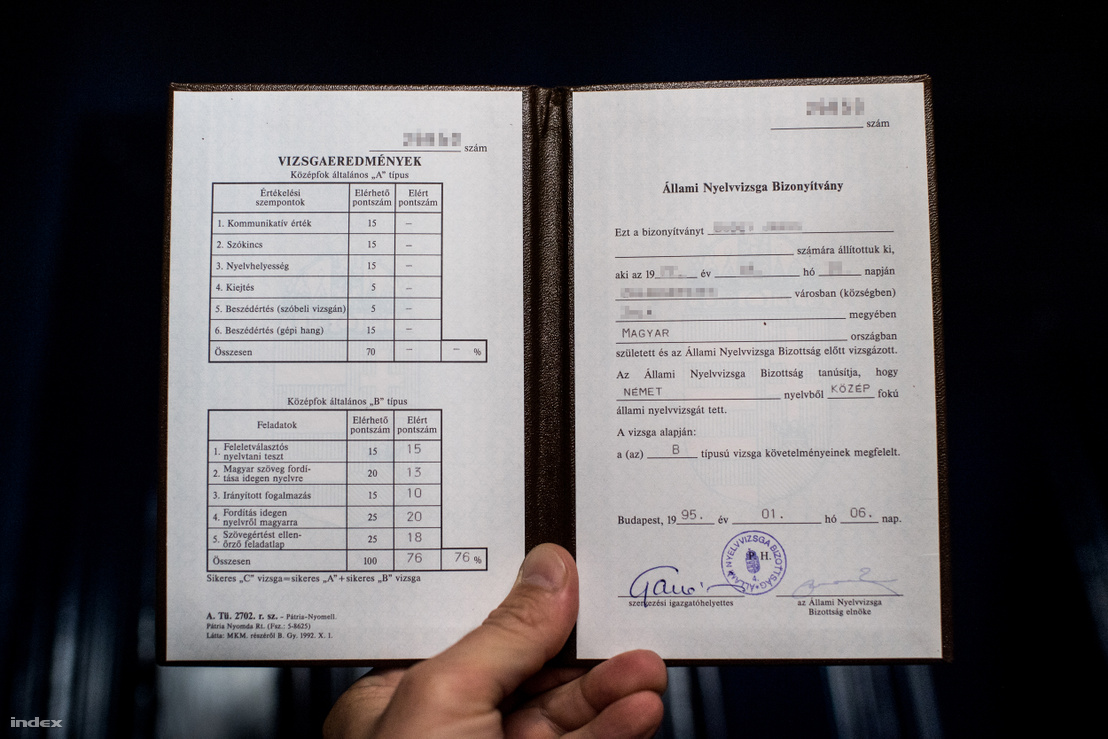 szám
VIZSGAEREDMÉNYEK
Középfok általános „A" típus
Értékelési szempontok Elérhető pontszám Elért pontszám
1. Kommunikatív érték 15 –
2. Szókincs 15 –
3. Nyelvhelyesség 15 –
4. Kiejtés 5 –
5. Beszédértés (szóbeli vizsgán) 5 –
6. Beszédértés (gépi hang) 15 –
Összesen 70 – – %
Középfok általános „B" típus
Feladatok Elérhető pontszám Elért pontszám
1. Feleletválasztós nyelvtani teszt 15 15
2. Magyar szöveg fordí-
tása idegen nyelvre 20 13
3. Irányított fogalmazás 15 10
4. Fordítás idegen nyelvről magyarra 25 20
5. Szövegértést ellen-
őrző feladatlap 25 18
Összesen 100 76 76 %
Sikeres „C" vizsga=sikeres „A"+sikeres „B" vizsga
A. Tü. 2702. r. sz. – Pátria-Nyomell.
Pátria Nyomda Rt. (Fsz.: 5-8625)
Látta: MKM. részéről B. Gy. 1992. X. 1.
szám
Állami Nyelvvizsga Bizonyítvány
Ezt a bizonyítványt
számára állítottuk ki,
aki az 19 év hó napján
városban (községben)
megyében
MAGYAR országban
született és az Állami Nyelvvizsga Bizottság előtt vizsgázott.
Az Állami Nyelvvizsga Bizottság tanúsítja, hogy
NÉMET nyelvből KÖZÉP fokú
állami nyelvvizsgát tett.
A vizsga alapján:
a (az) B típusú vizsga követelményeinek megfelelt.
Budapest, 19 95. év 01. hó 06. nap.
P. H.
ÁLLAMI NYELVVIZSGA BIZOTTSÁG
4.
szervezési igazgatóhelyettes
az Állami Nyelvvizsga
Bizottság elnöke
index